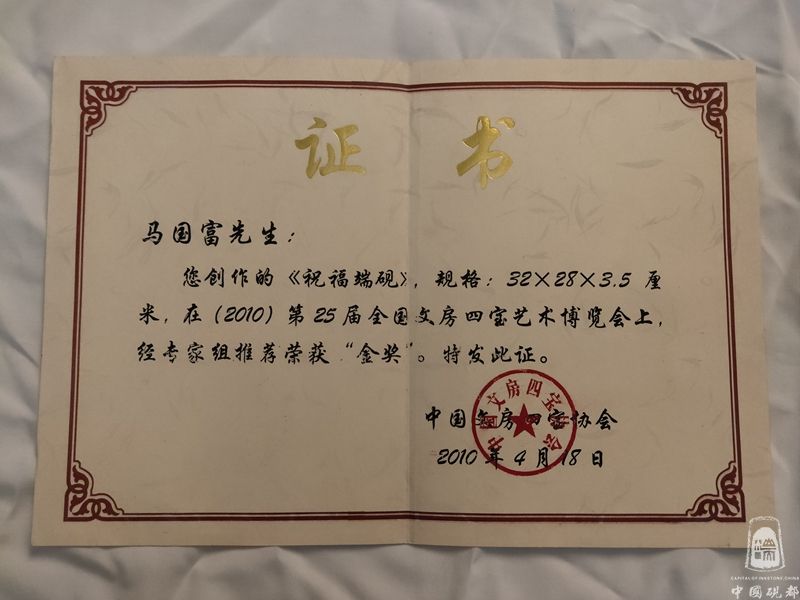 证 书
马国富先生：
您创作的《祝福端砚》，规格：32×28×3.5 厘
米，在（2010）第25届全国文房四宝艺术博览会上，
经专家组推荐荣获“金奖”。特发此证。
中国文房四宝协会
2010 年 4 月 18 日
中国文房四宝协会
CAPITAL OF INKSTONE,CHINA
中國硯都